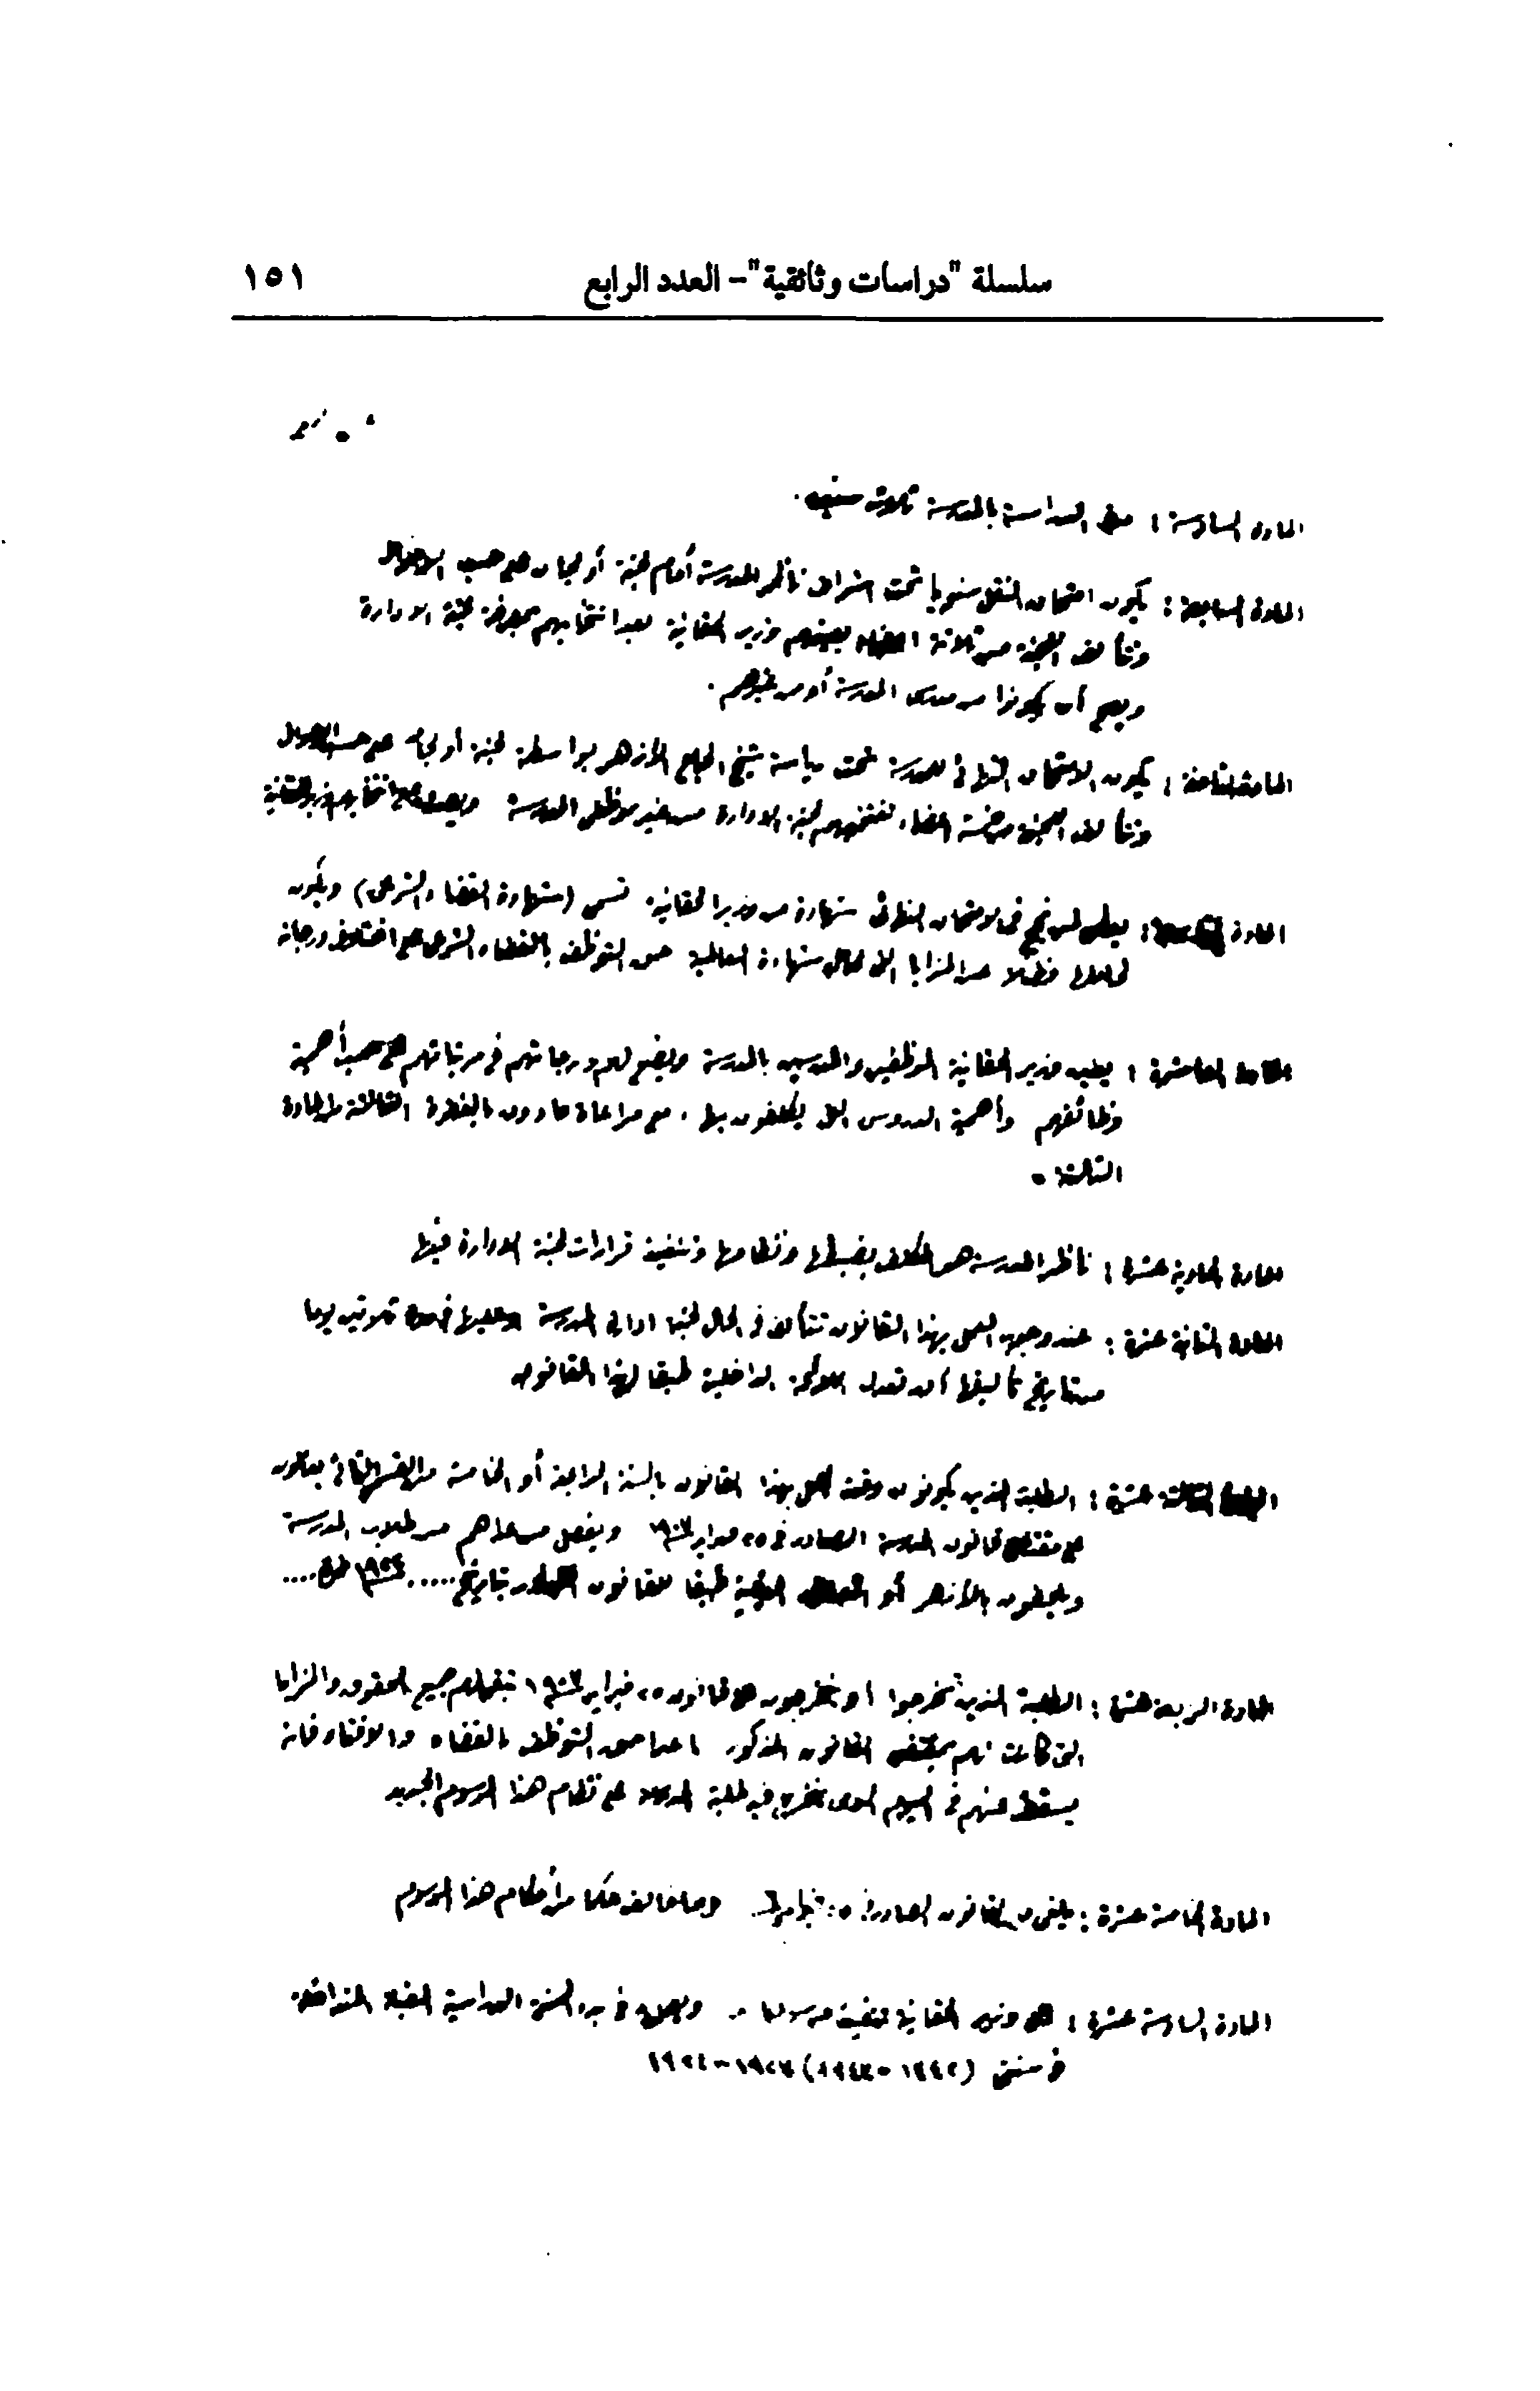 سلسلة "دراسات وثائقية"- العدد الرابع ١٥١
المادة السادسة : مدة الدراسة بالمدرسة ثلاث سنين .
المادة السابعة : يكون امتحان النقل سنويا تحت اشراف ناظر المدرسة أمام لجنة أو لجان على حسب الاحوال
وتتألف اللجنة من ثلاثة اعضاء يعينهم وزير الحقانية بعد انتخابهم بمعرفة لجنة الادارة
ويصح أن يكونوا من مدرسى المدرسة أو من غيرهم .
المادة الثامنة : يكون الامتحان النهائى للمدرسة تحت رياسة شيخ الجامع الأزهر بواسطة لجنة أو لجان على حسب الاحوال
وتتألف اللجنة من خمسة اعضاء تنتخبهم لجنة الادارة من غير موظفى المدرسة ويصدق على انتخابهم وزير الحقانية
المادة التاسعة : يعطى لمن نجح فى الامتحان النهائى شهادة من وزير الحقانية تسمى (شهادة القضاء الشرعى) ويكون
لحاملها فضلا عن المزايا التى لحامل شهادة العالمية حق التوظف بالقضاء الشرعى على اختلاف درجاته
المادة العاشرة : يعين وزير الحقانية الموظفين والمدرسين بالمدرسة ويضع لهم درجاتهم فى مرتباتهم على حسب أهمية
وظائفهم وأهمية الدروس التى يكلفون بها ، مع مراعاة ما دون بالفقرة الثالثة من المادة
الثالثة .
المادة الحادية عشرة : ناظر المدرسة هو المكلف بضبطها ونظامها وتنفيذ قرارات لجنة الادارة فيها
المادة الثانية عشرة : عند وجوب العمل بهذا القانون تتألف فى الحال لجنة ادارة المدرسة وعليها فى مدة ثلاثين يوما
من تاريخ تأليفها أن تعدل اللائحة الداخلية طبقا لهذا القانون
المادة الثالثة عشرة : الطلبة الذين يكونون وقت العمل بهذا القانون بالسنة الرابعة أو الخامسة من القسم الثانى يعاملون
على مقتضى قانون المدرسة الصادر فى ٢٥ فبراير ١٩٠٧ ويفصل من عداهم من طلاب المدرسة
ويلحقون بالأزهر أو المعاهد الدينية طبقا للقانون الصادر بتاريخ ..... ....
المادة الرابعة عشرة : الطلبة الذين تخرجوا أو يتخرجون على قانون ٢٥ فبراير ١٩٠٧ تبقى لهم جميع الحقوق والمزايا
التى كانت لهم بمقتضى القانون المذكور ما عدا حق التوظف بالقضاء والافتاء فانه
يسقط عنهم فى اليوم الذى يتخرج فيه طلبة المدرسة على نظام هذا المرسوم الجديد
المادة الخامسة عشرة : يلغى القانون الصادر فى ٢٥ فبراير وما خالف حكما من أحكام هذا المرسوم
المادة السادسة عشرة : على وزير الحقانية تنفيذ مرسومنا .. ويعمل به فى بدء السنة الدراسية المقبلة المتداخلة
فى سنتى (١٣٤٢-١٣٤٣) ١٩٢٣-١٩٢٤